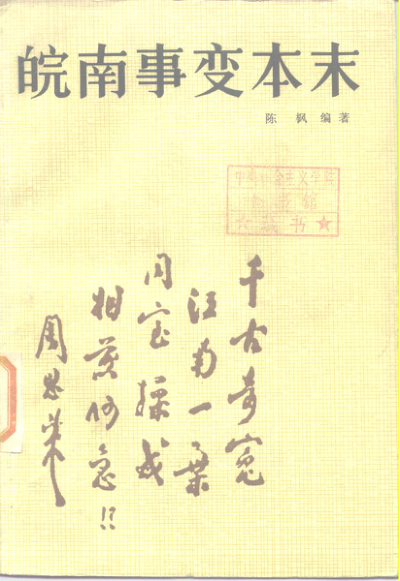 皖南事变本末
陈 枫 编著
社会主义学院
图书馆
藏书★
千古奇冤
江南一葉
同室操戈
相煎何急!?
周恩来